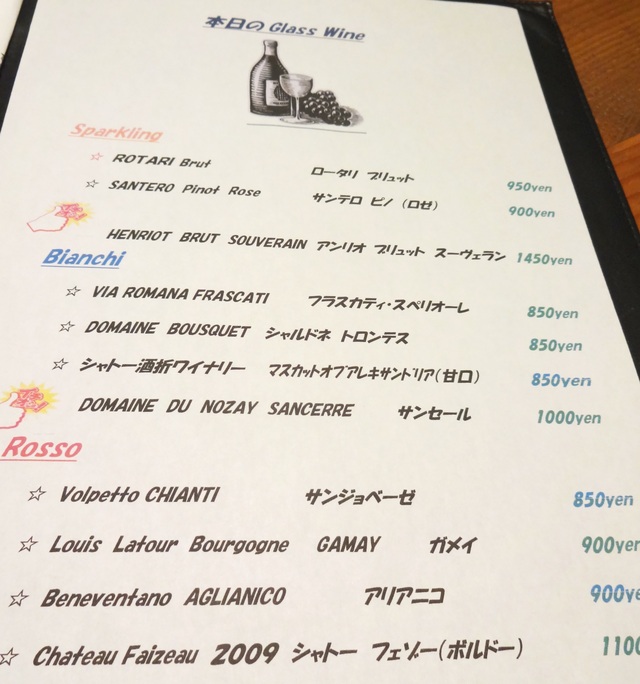 本日の Glass Wine
Sparkling
☆ ROTARI Brut ロータリ ブリュット 950yen
☆ SANTERO Pinot Rose サンテロ ピノ (ロゼ) 900yen
HENRIOT BRUT SOUVERAIN アンリオ ブリュット スーヴェラン 1450yen
Bianchi
☆ VIA ROMANA FRASCATI フラスカティ・スペリオーレ 850yen
☆ DOMAINE BOUSQUET シャルドネ トロンテス 850yen
☆ シャトー酒折ワイナリー マスカットオブアレキサンドリア(甘口) 850yen
DOMAINE DU NOZAY SANCERRE サンセール 1000yen
Rosso
☆ Volpetto CHIANTI サンジョベーゼ 850yen
☆ Louis Latour Bourgogne GAMAY ガメイ 900yen
☆ Beneventano AGLIANICO アリアニコ 900ye
☆ Chateau Faizeau 2009 シャトー フェゾー(ボルドー) 1100